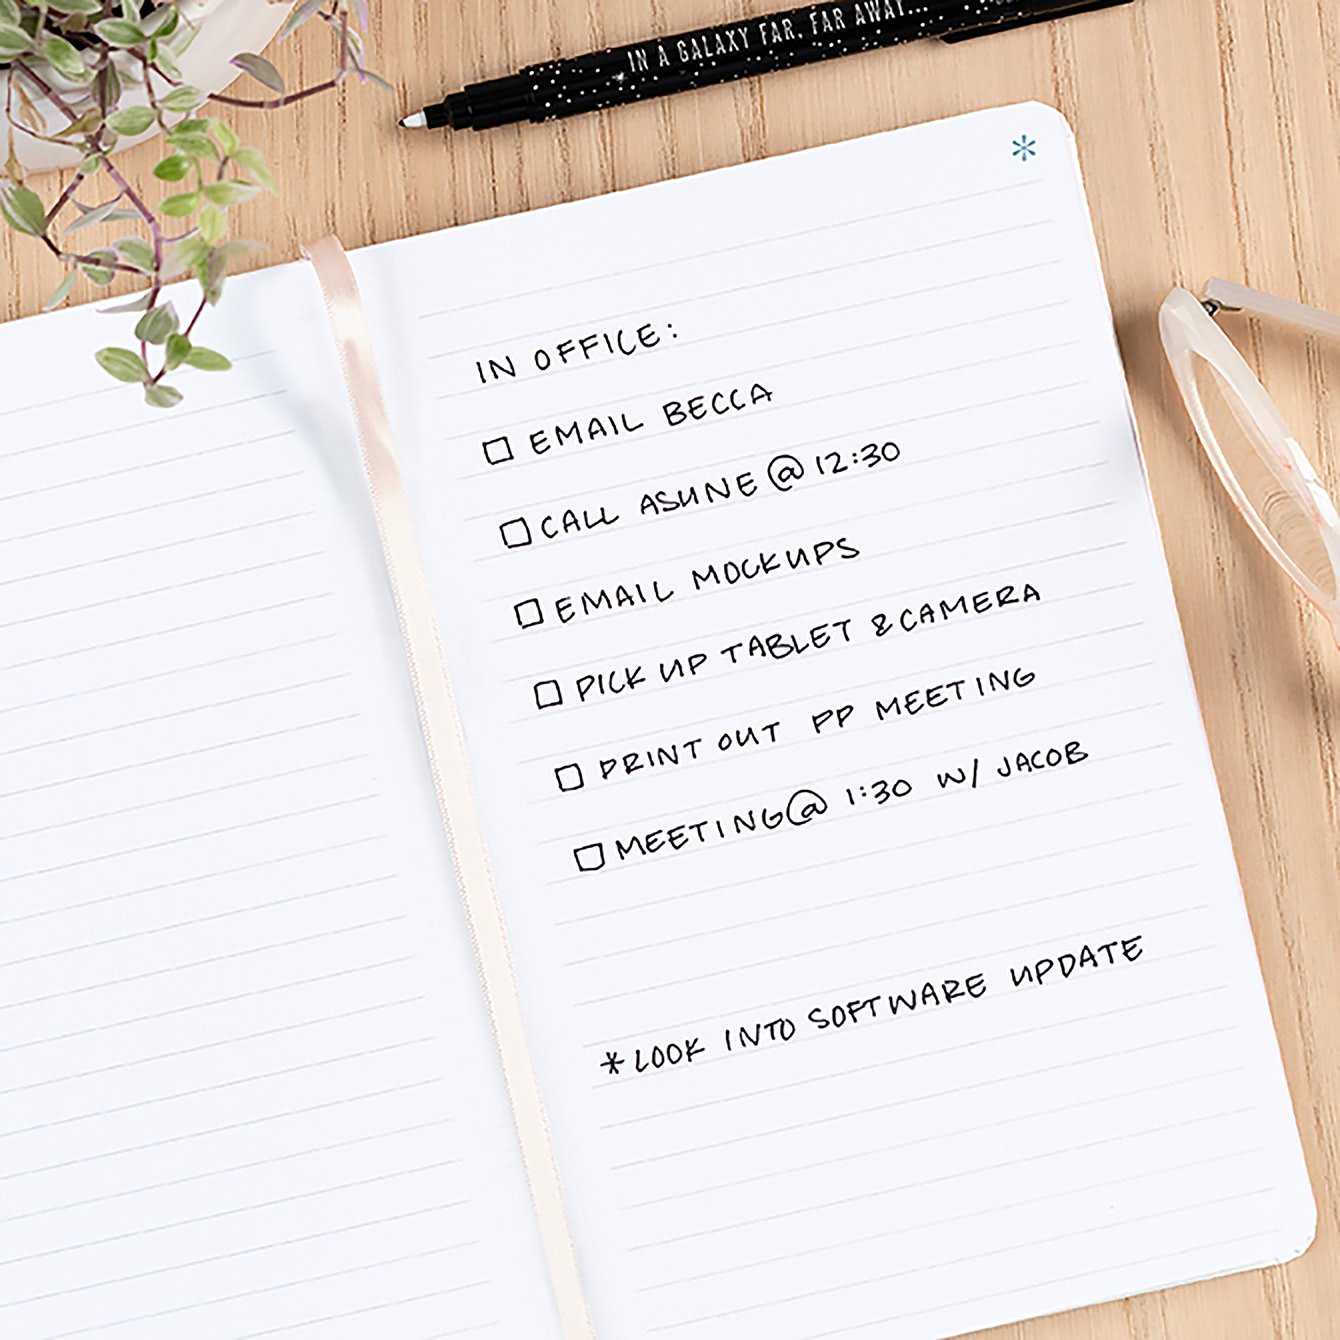 IN A GALAXY FAR, FAR AWAY...
*
IN OFFICE:
☐ EMAIL BECCA
☐ CALL @ 12:30
☐ EMAIL MOCKUPS
☐ PICK UP TABLET & CAMERA
☐ PRINT OUT PP MEETING
☐ MEETING @ 1:30 W/ JACOB
* LOOK INTO SOFTWARE UPDATE